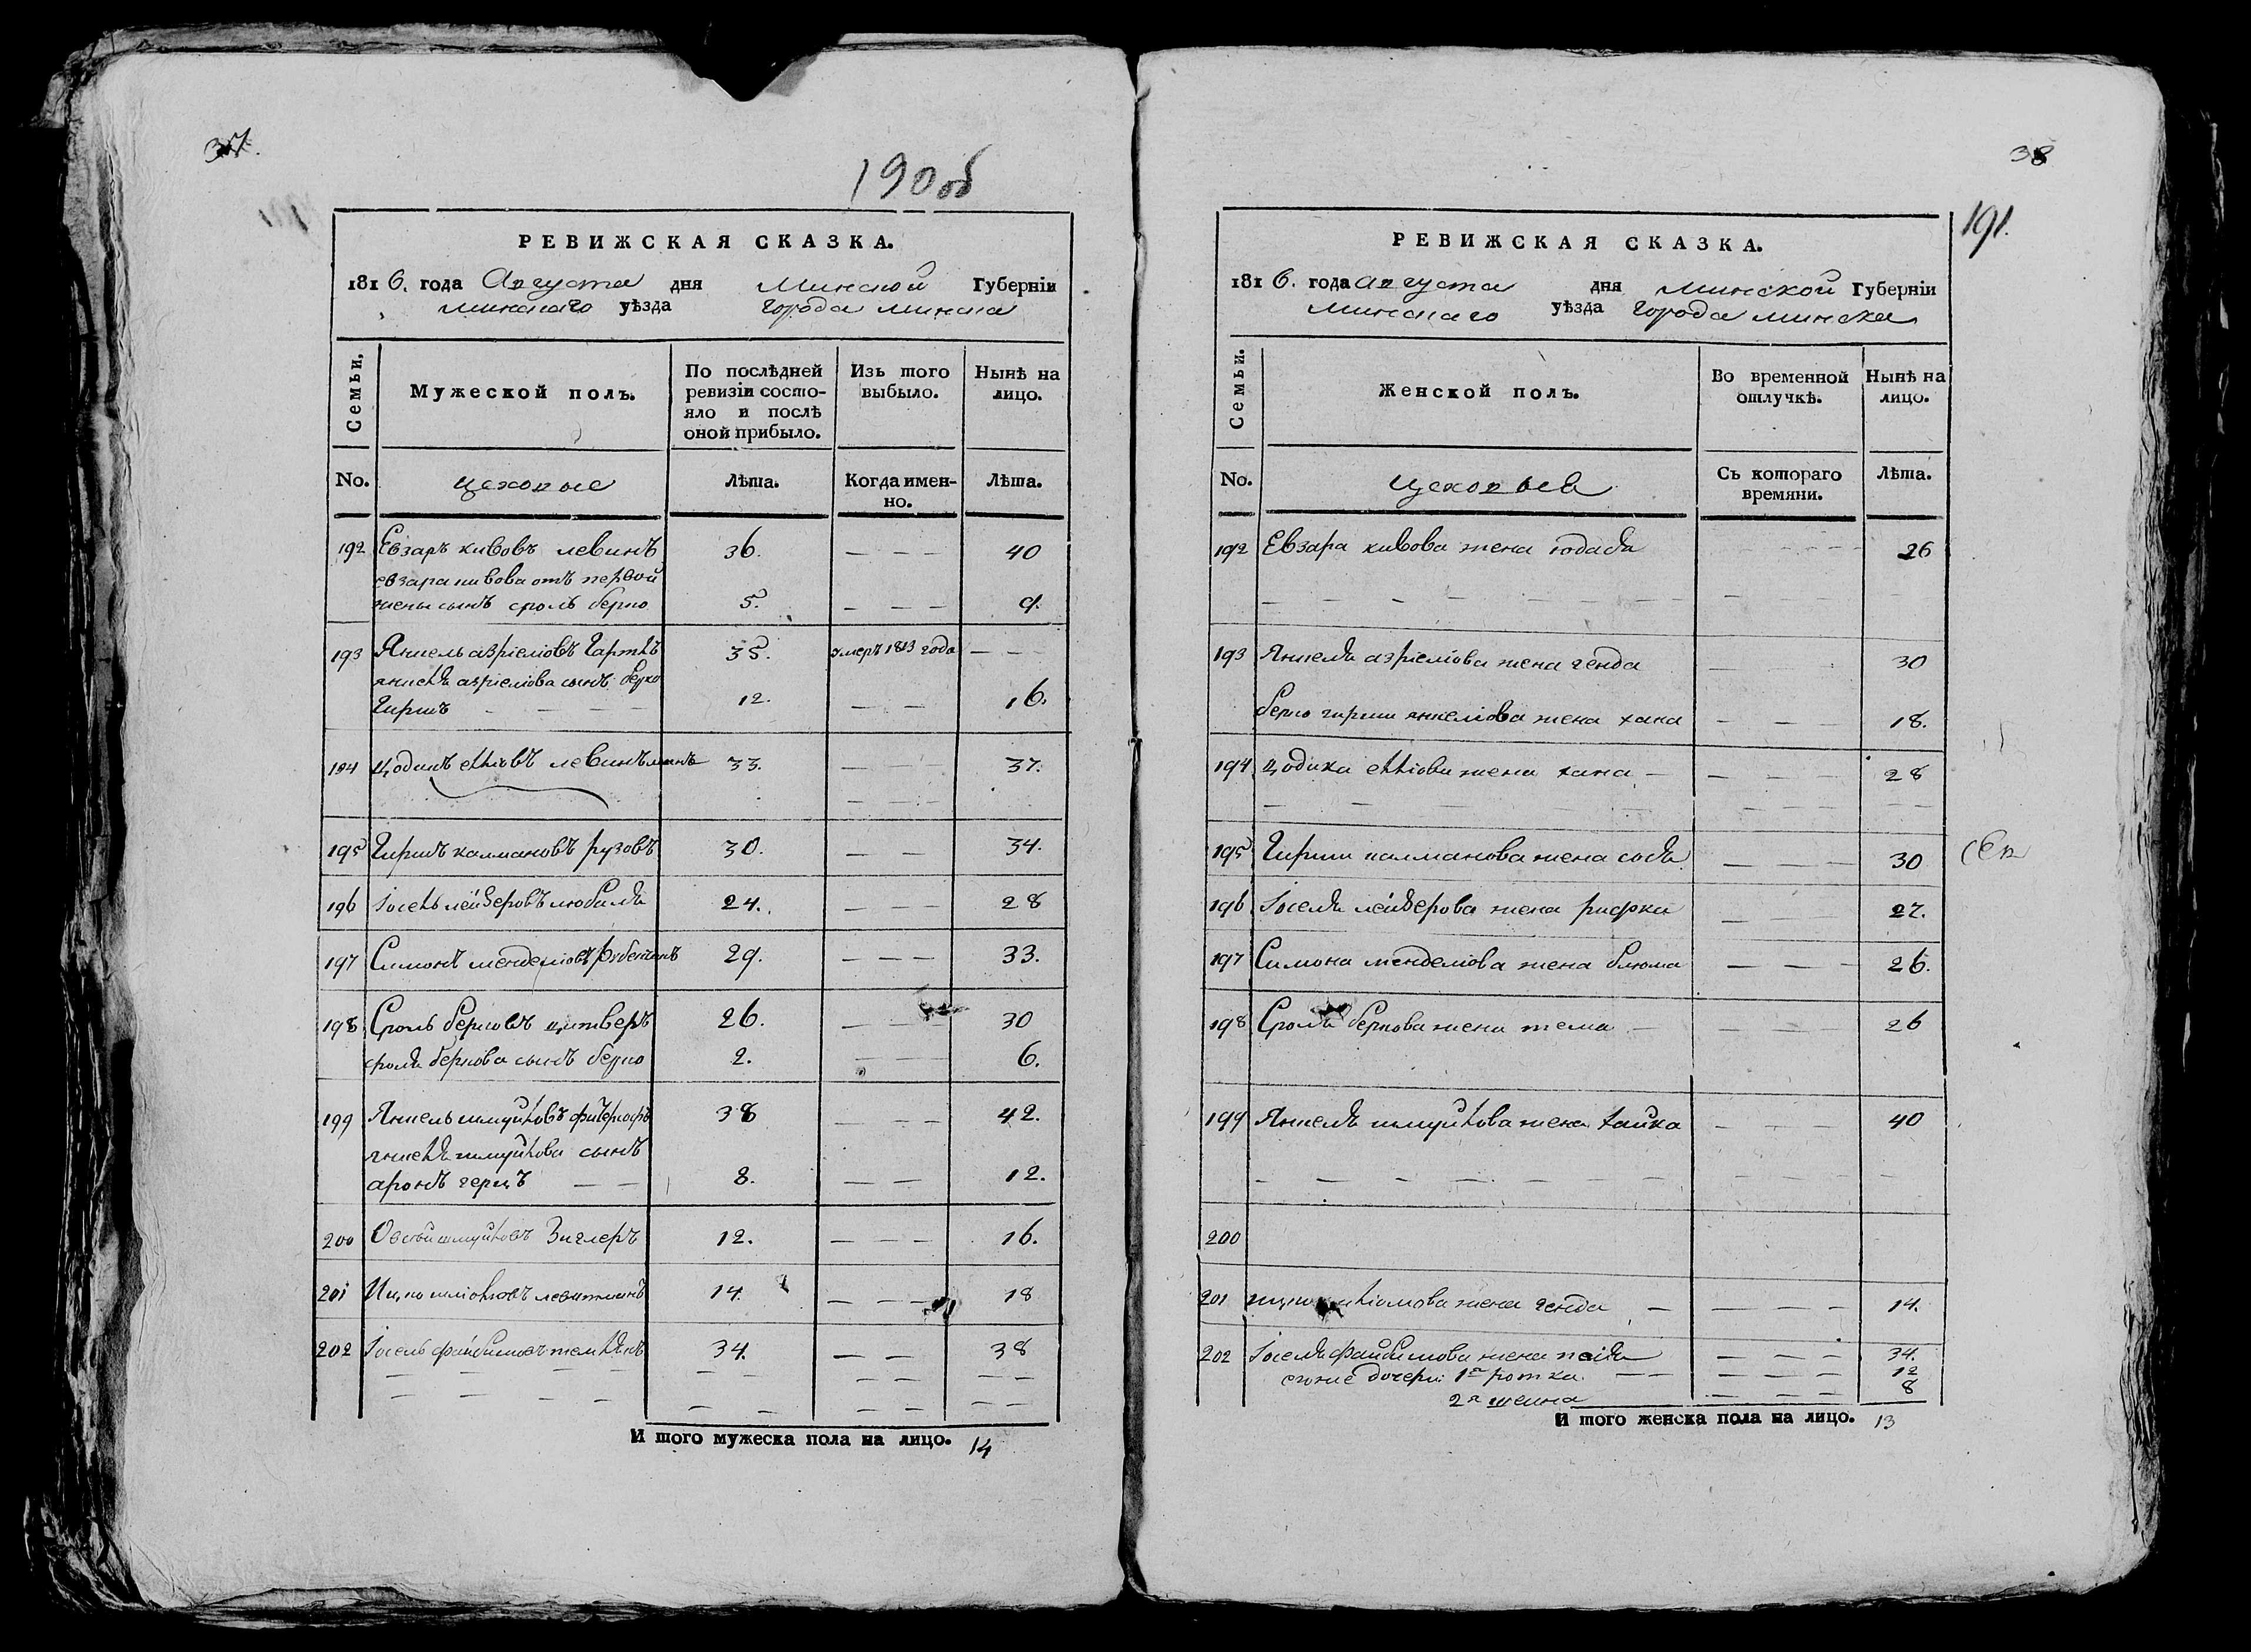 37.
190 об
РЕВИЖСКАЯ СКАЗКА.
1816. года Августа дня Минской Губерніи
минскаго уѣзда города минска
Семьи.
Мужеской полъ.
По послѣдней ревизіи состояло и послѣ оной прибыло.
Изъ того выбыло.
Нынѣ на лицо.
No. цеховые Лѣта. Когда именно. Лѣта.
192 Евзаръ кивовъ левинъ 36. — — — 40
евзара кивова отъ первой
жены сынъ сроль берко 5. — — — 9.
193 Янкель азріеліовъ 35. умеръ 1813 года — —
янкеля азріеліова сынъ берко
гиршъ — — — — 12. — — 16.
194 Цодикъ 33. — — — 37.
— — —
195 Гиршъ калмановъ рузовъ 30. — — 34.
196 Іосель лейзеровъ 24. — — — 28
197 Симонъ менделіовъ 29. — — — 33.
198 Сроль берковъ цитверъ 26. — — 30
сроля беркова сынъ берко 2. — — 6.
199 Янкель шмуйловъ 38 — — — 42.
янкеля шмуйлова сынъ
аронъ герцъ — — 8. — — 12.
200 Овсей шмуйловъ Зиглеръ 12. — — — 16.
201 Ицко шліомовъ левитманъ 14. — — — 18
202 Іосель файбишовъ 34. — — 38
— — — — — — — —
— — — — — — — — — —
И того мужеска пола на лицо. 14
38
191.
РЕВИЖСКАЯ СКАЗКА.
1816. года августа дня минской Губерніи
минскаго уѣзда города минска
Семьи.
Женской полъ.
Во временной отлучкѣ.
Нынѣ на лицо.
No. цеховые Съ котораго времяни. Лѣта.
192 Евзара кивова жена юдася — — — 26
— — — — — — — —
193 Янкеля азріеліова жена генда — — 30
берко гирши янкеліова жена хана — — — 18.
194 Цодика жена хана — — — — 28
— — — — — — — — — —
195 Гирши калманова жена сося — — — 30
196 Іоселя лейзерова жена рифка — — — 27.
197 Симона менделіова жена блюма — — — 26.
198 Сроля беркова жена тема — — — 26
199 Янкеля шмуйлова жена хайка — — — 40
— — — — — — — — — — —
200
201 ицко шліомова жена генда — — — — 14.
202 Іоселя файбишова жена — — — 34.
дочери 1я ротка — — — — — 12
2я шейна — — — 8
И того женска пола на лицо. 13